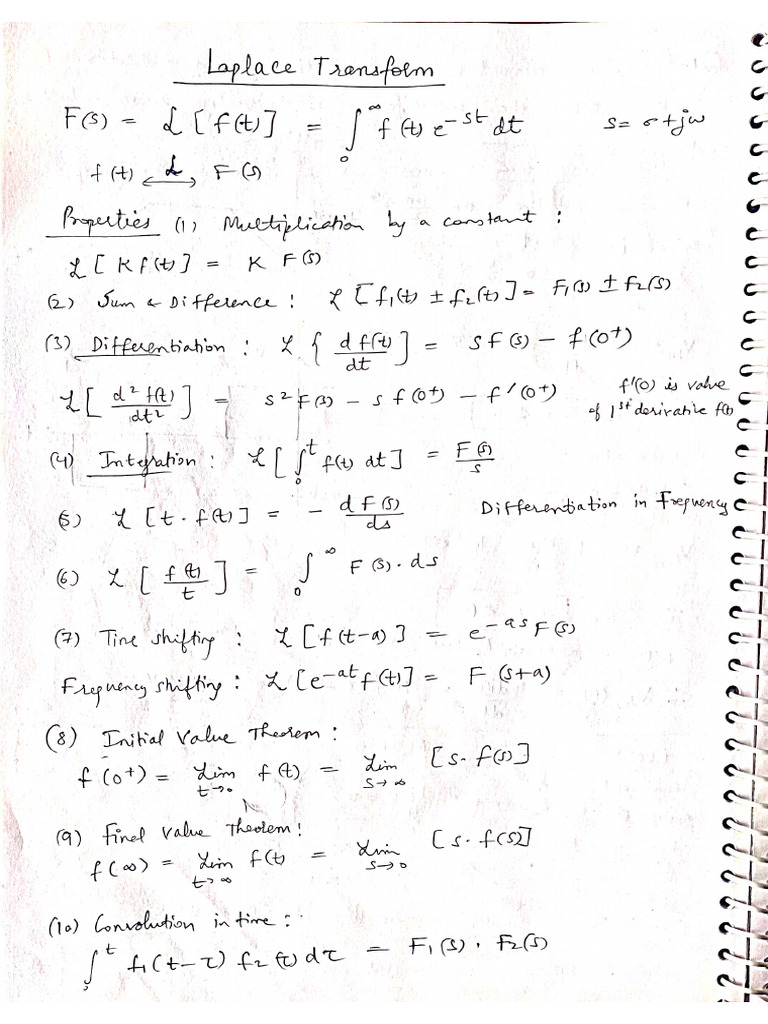 Laplace Transform
F(s) = ℒ[f(t)] = ∫₀^∞ f(t) e^{-st} dt    s = σ+jω
f(t) ⟷^ℒ F(s)
Properties (1) Multiplication by a constant :
ℒ[K f(t)] = K F(s)
(2) Sum & Difference : ℒ[f₁(t) ± f₂(t)] = F₁(s) ± F₂(s)
(3) Differentiation : ℒ{df(t)/dt] = sF(s) − f(0⁺)
ℒ[d²f(t)/dt²] = s²F(s) − s f(0⁺) − f'(0⁺)    f'(0) is value
of 1st derivative f(t)
(4) Integration : ℒ[∫₀^t f(t) dt] = F(s)/s
(5) ℒ[t·f(t)] = − dF(s)/ds    Differentiation in Frequency
(6) ℒ[f(t)/t] = ∫₀^∞ F(s)·ds
(7) Time shifting : ℒ[f(t−a)] = e^{-as} F(s)
Frequency shifting : ℒ[e^{-at} f(t)] = F(s+a)
(8) Initial Value Theorem :
f(0⁺) = Lim_{t→0} f(t) = Lim_{s→∞} [s·f(s)]
(9) Final Value Theorem :
f(∞) = Lim_{t→∞} f(t) = Lim_{s→0} [s·f(s)]
(10) Convolution in time :
∫₀^t f₁(t−τ) f₂(τ) dτ = F₁(s) · F₂(s)